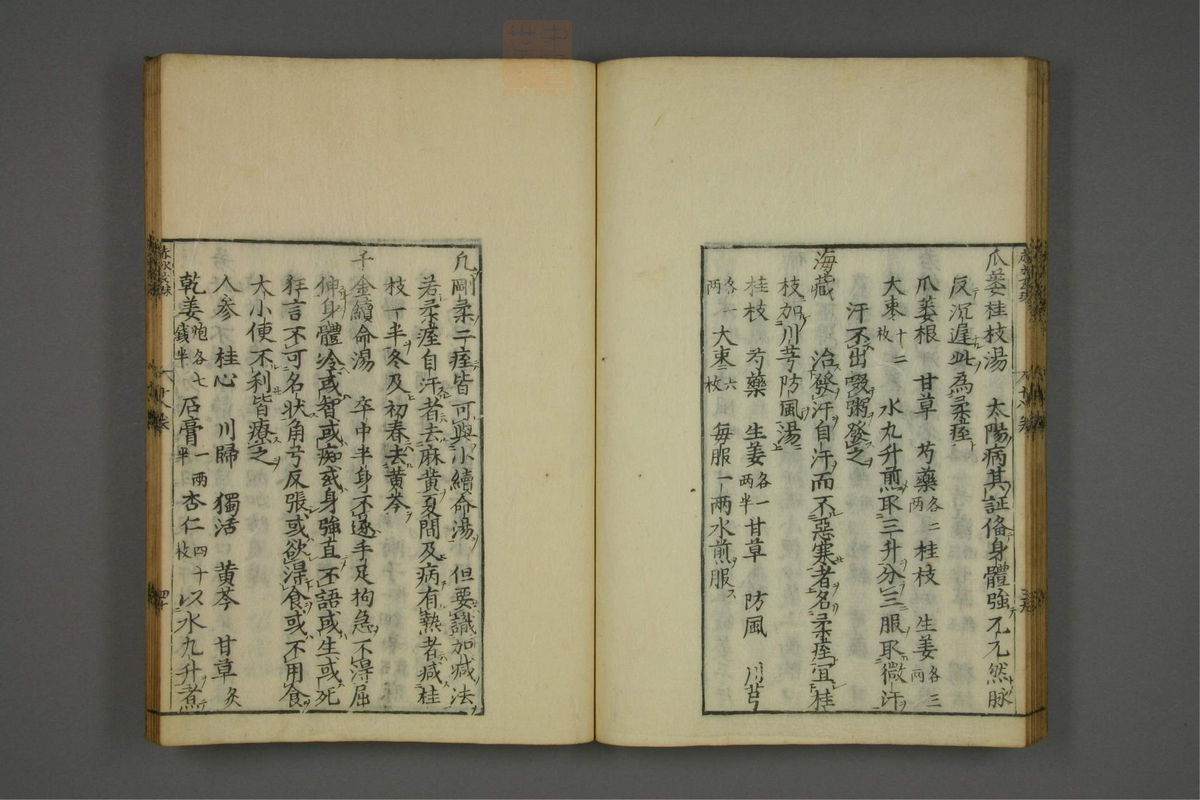 瓜蔞桂枝湯 太陽病其証俻身體強几几然脉
反沉遲此為柔痓
瓜蔞根 甘草 芍藥各二両 桂枝 生姜各三両
大棗十二枚 水九升煎取三升分三服取微汗
汗不出啜粥發之
海藏 治發汗自汗而不惡寒者名柔痓宜桂
枝加川芎防風湯
桂枝 芍藥 生姜各一両半 甘草 防風 川芎
各一両 大棗六枚 每服一両水煎服
凡剛柔二痓皆可與小續命湯 但要識加减法
若柔痓自汗者去麻黄夏間及病有熱者减桂
枝一半冬及初春去黄芩
千金續命湯 卒中半身不遂手足拘急不得屈
伸身體冷或智或痴或身強直不語或生或死
狂言不可名状角弓反張或欲得食或不用食
大小便不利皆療之
人参 桂心 川歸 獨活 黄芩 甘草炙
乾姜炮各七錢半 石膏一両半 杏仁四十枚 以水九升煮